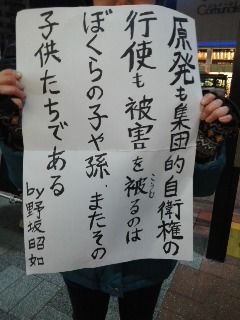 原発も集団的自衛権の
行使も被害を被るのは
こうむ
ぼくらの子や孫、またその
子供たちである
by野坂昭如